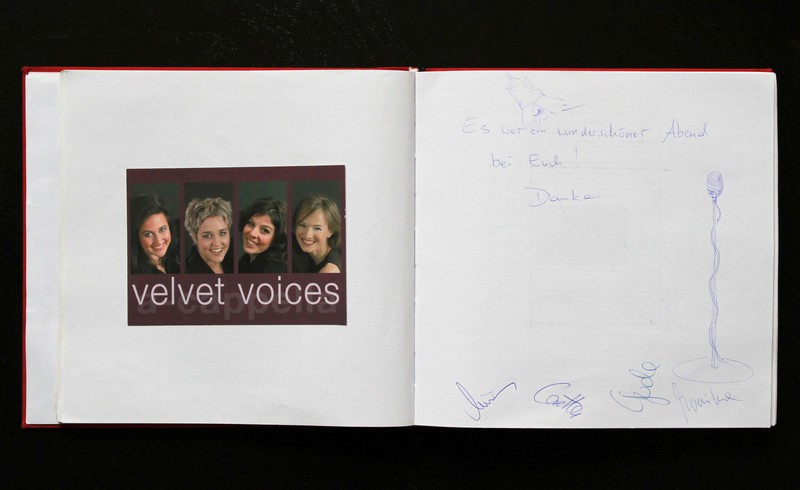 velvet voices
a cappella
Es war ein wunderschöner Abend
bei Euch!
Danke